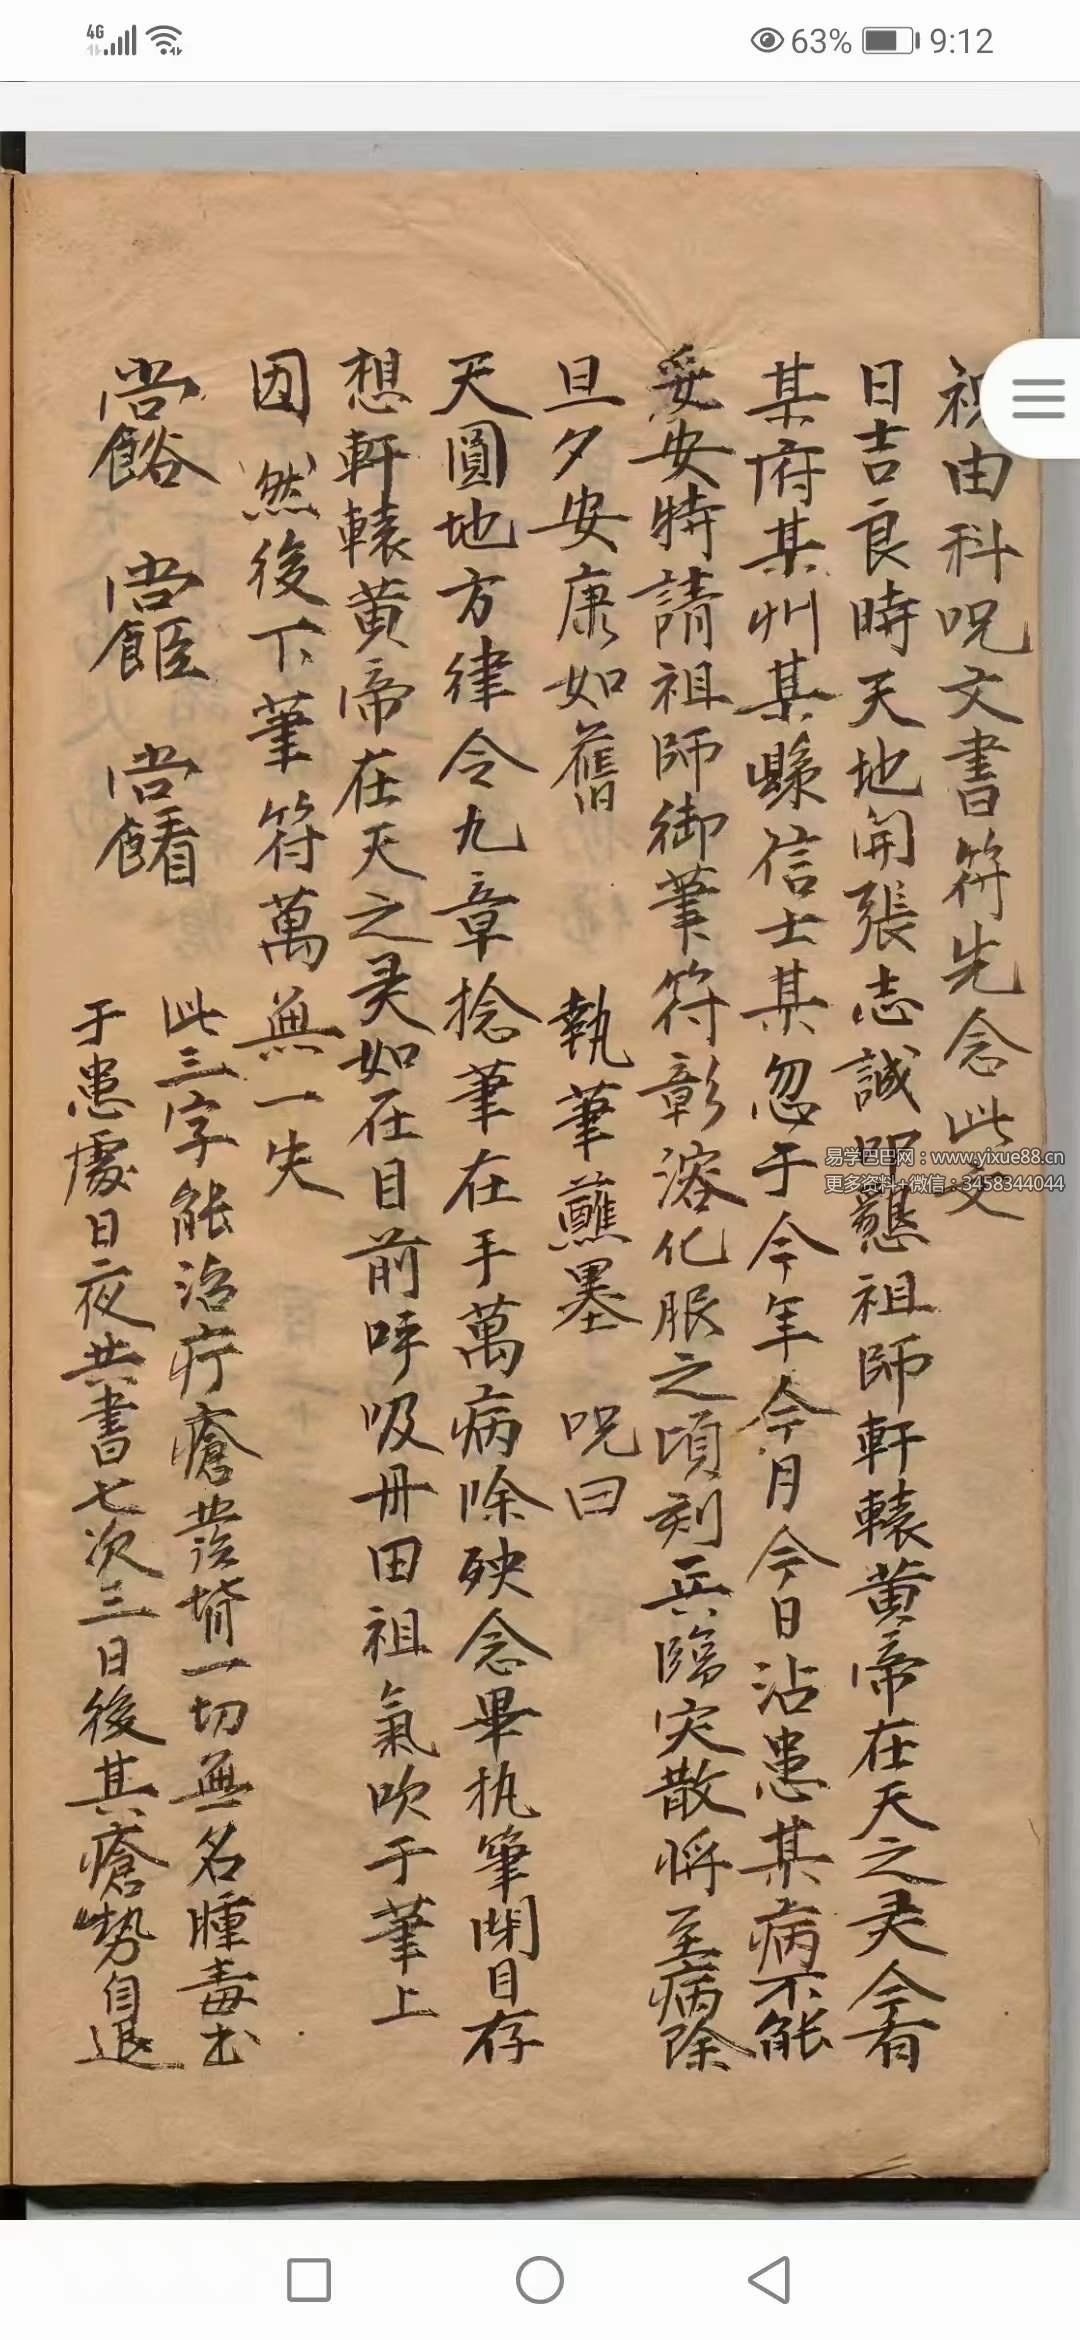 4G
63% 9:12
祝由科呪文書符先念此文
日吉良時天地開張志誠叩懇祖師軒轅黄帝在天之灵今有
某府某州某縣信士某忽于今年今月今日沾患某病不能
妥安特請祖師御筆符彰溶化服之頃刻兵臨灾散將至病除
旦夕安康如舊 執筆蘸墨 呪曰
天圓地方律令九章捻筆在手萬病除殃念畢执筆閉目存
想軒轅黄帝在天之灵如在目前呼吸丹田祖氣吹于筆上
因 然後下筆符萬無一失
此三字能治疔瘡發背一切無名腫毒出
于患處日夜共書七次三日後其瘡勢自退
易学巴巴网：www.yixue88.cn
更多资料+微信：3458344044